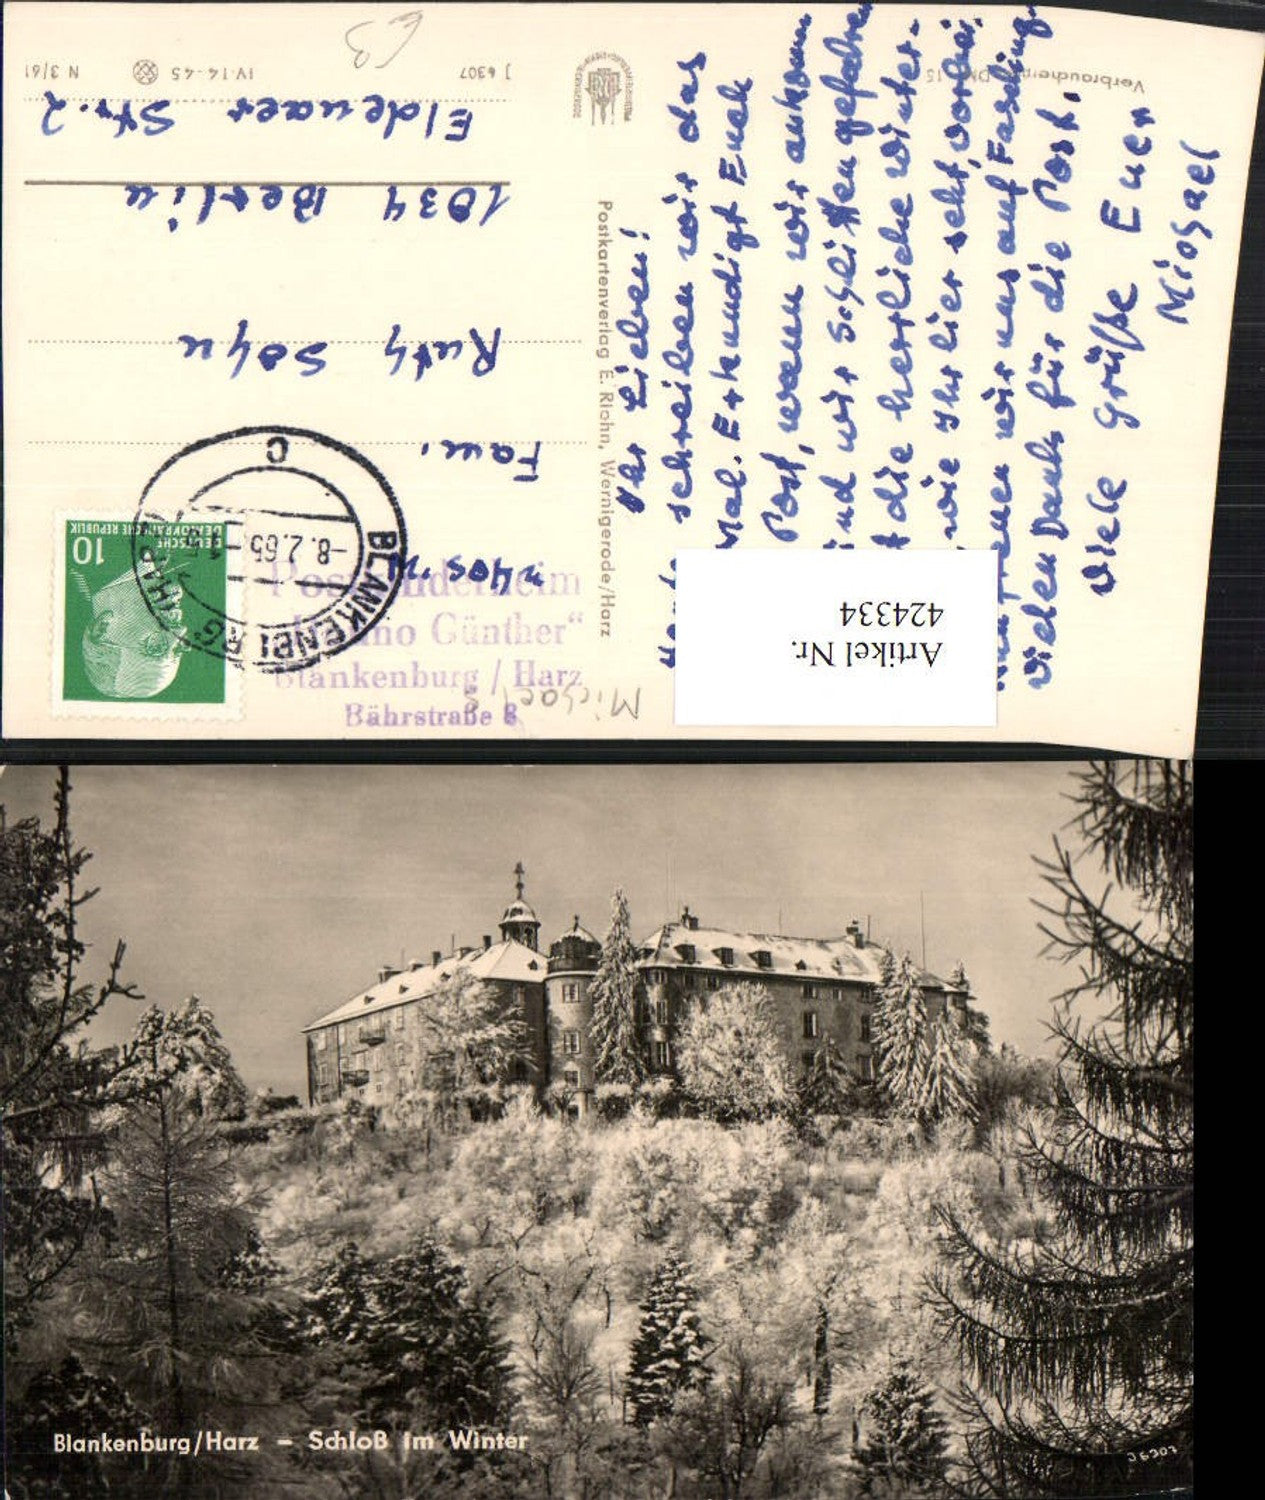 Ihr Lieben!
schreiben wir das
Mal. Erkundigt Euch
Post, wann wir ankom
und wir Schlitten gefahren
die herrliche Winter-
wie Ihr hier seht, vorbei
wir uns auf Fasching.
Vielen Dank für die Post.
Viele Grüße Euer
Michael
Verbraucherpr. DM 15
Postkartenverlag E. Riehn, Wernigerode/Harz
Fam.
Ruth
1034 Berlin
Eldenaer Str. 2
J 6307
IV-14-45
N 3/61
DEUTSCHE
DEMOKRATISCHE REPUBLIK
10
BLANKENBURG (HARZ)
-8.2.65-
C
Günther“
Blankenburg / Harz
Bährstraße 8
Michael
Artikel Nr.
424334
Blankenburg/Harz – Schloß im Winter
J 6307